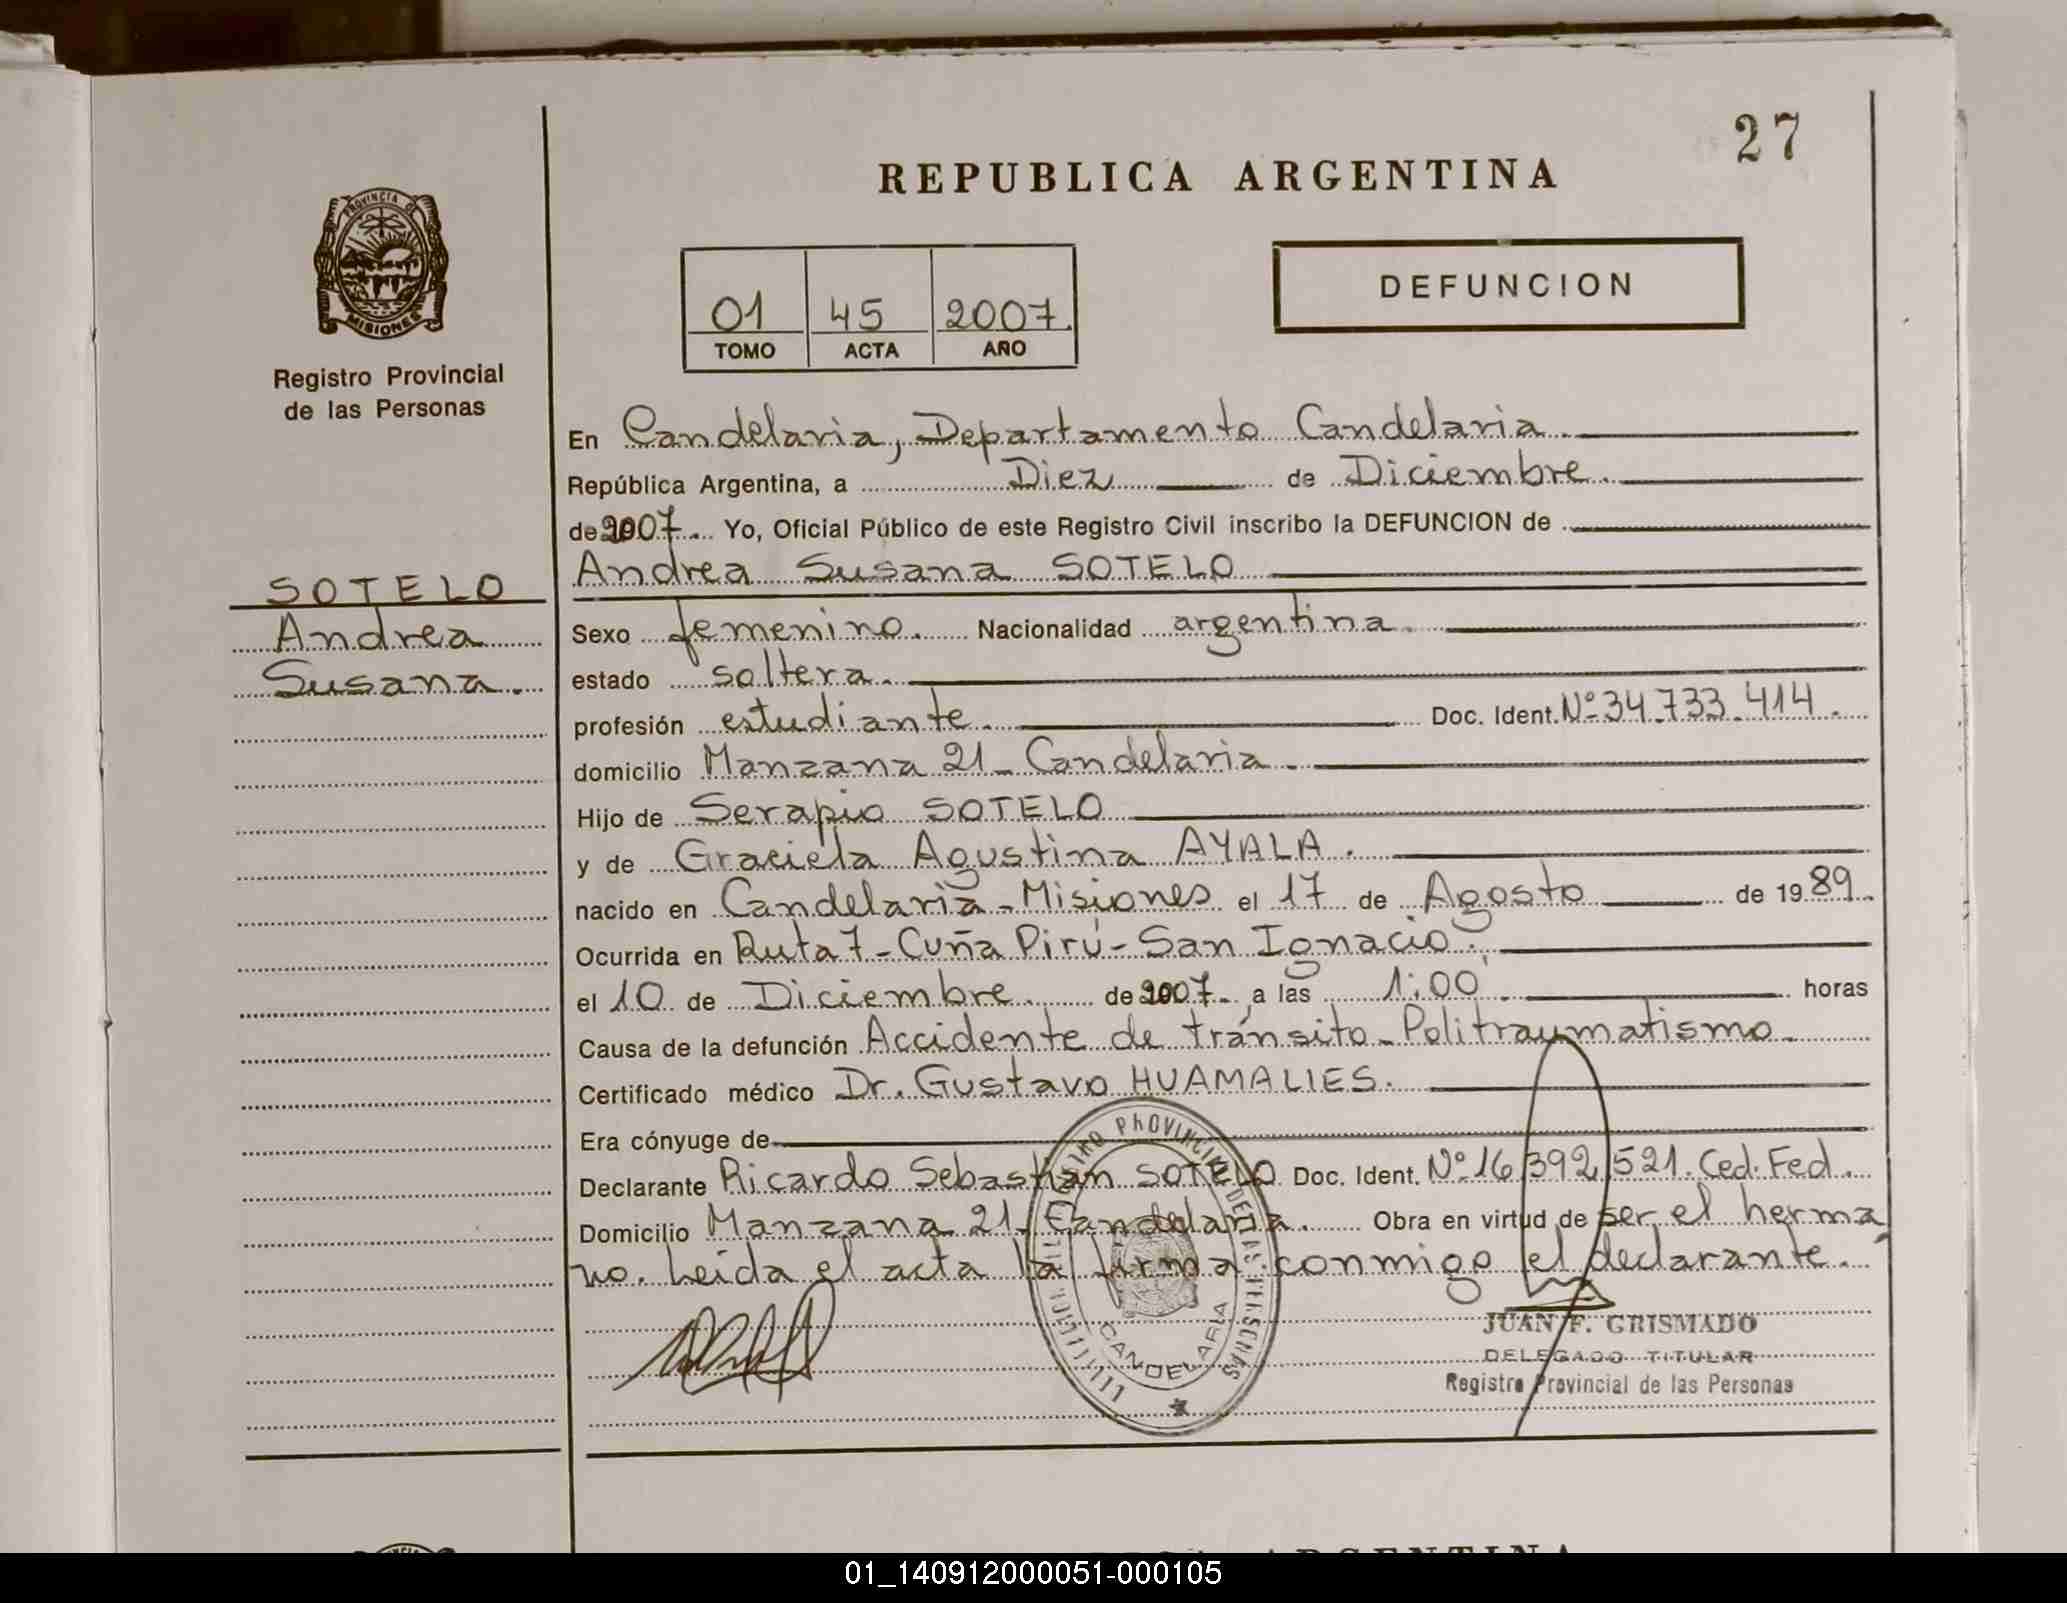 27
REPUBLICA ARGENTINA
PROVINCIA DE
MISIONES
Registro Provincial
de las Personas
01 45 2007.
TOMO ACTA AÑO
DEFUNCION
En Candelaria, Departamento Candelaria.
República Argentina, a Diez de Diciembre.
de 2007. Yo, Oficial Público de este Registro Civil inscribo la DEFUNCION de
SOTELO
Andrea
Susana.
Andrea Susana SOTELO
Sexo femenino. Nacionalidad argentina.
estado soltera.
profesión estudiante. Doc. Ident. Nº 34.733.414.
domicilio Manzana 21 - Candelaria.
Hijo de Serapio SOTELO
y de Graciela Agustina AYALA.
nacido en Candelaria - Misiones el 17 de Agosto de 1989.
Ocurrida en Ruta 7 - Cuña Pirú - San Ignacio.
el 10 de Diciembre de 2007., a las 1:00. horas
Causa de la defunción Accidente de tránsito - Politraumatismo.
Certificado médico Dr. Gustavo HUAMALIES.
Era cónyuge de
Declarante Ricardo Sebastián SOTELO Doc. Ident. Nº 16.392.521. Ced. Fed.
Domicilio Manzana 21 - Candelaria. Obra en virtud de ser el herma
no. Leida el acta la firma conmigo el declarante.
PROVINCIAL DE LAS PERSONAS
CANDELARIA
JUAN F. GRISMADO
DELEGADO TITULAR
Registro Provincial de las Personas
ARGENTINA
01_140912000051-000105